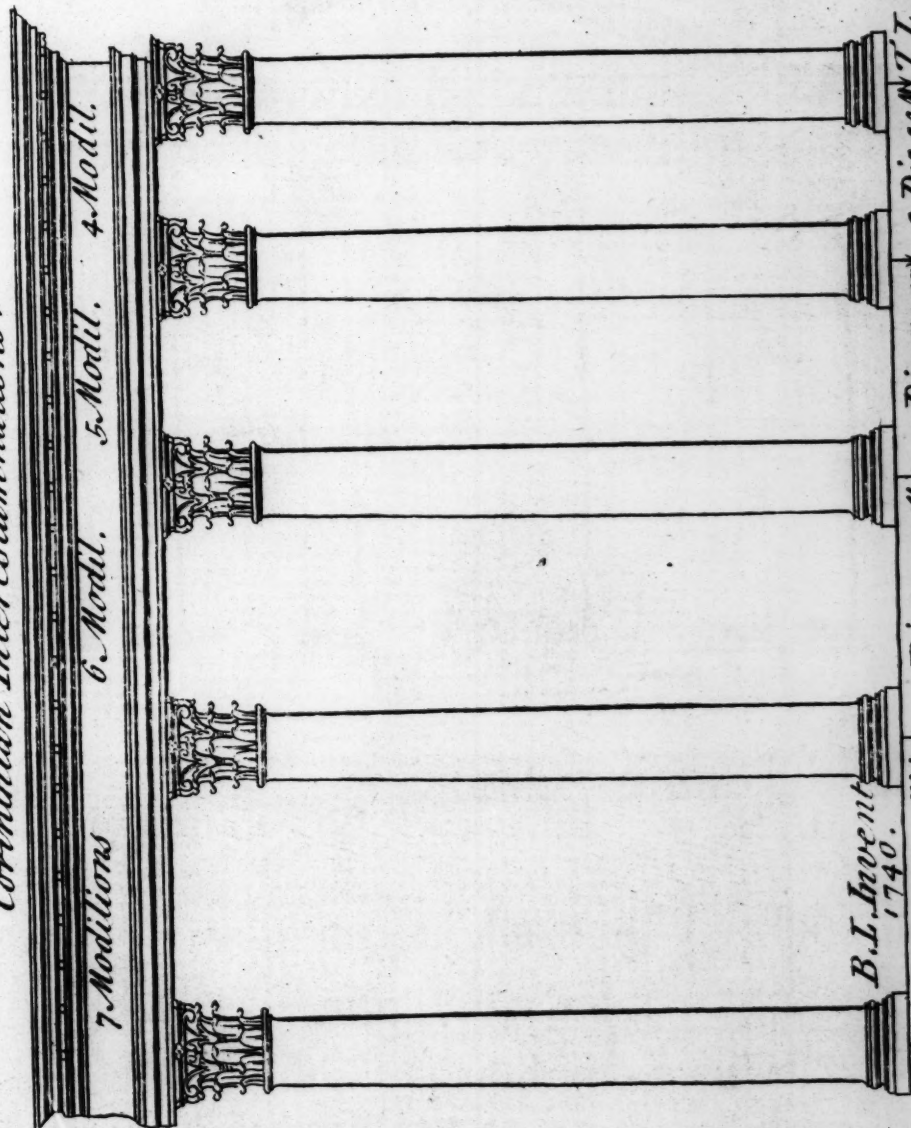 Corinthian Intercolumniations.
7 Modilions 6. Modil. 5. Modil. 4. Modil.
B. L. Invent
1740.